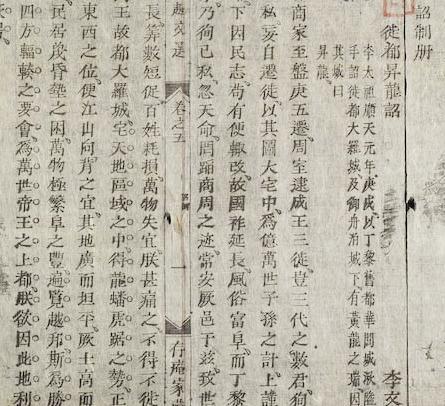 詔制冊
徙都昇龍詔
李文
李太祖順天元年庚戌以丁黎舊都華閭城湫隘
手詔徙都大羅城及御舟泊城下有黃龍之瑞因
其城曰
昇龍
商家至盤庚五遷周室逮成王三徙豈三代之數君狥
私妄自遷徙以其圖大宅中為億萬世子孫之計上謹
下因民志苟有便輒改故國祚延長風俗富阜而丁黎
乃狥己私忽天命罔蹈商周之迹常安厥邑于茲致世
越文選 卷之五 一 存庵家
長算數短促百姓耗損萬物失宜朕甚痛之不得不徙
王故都大羅城宅天地區域之中得龍蟠虎踞之勢正
東西之位便江山向背之宜其地廣而坦平厥土高而
民居蔑昏墊之困萬物極繁阜之豐遍覽越邦斯為勝
四方輻輳之要會為萬世帝王之上都朕欲因此地利